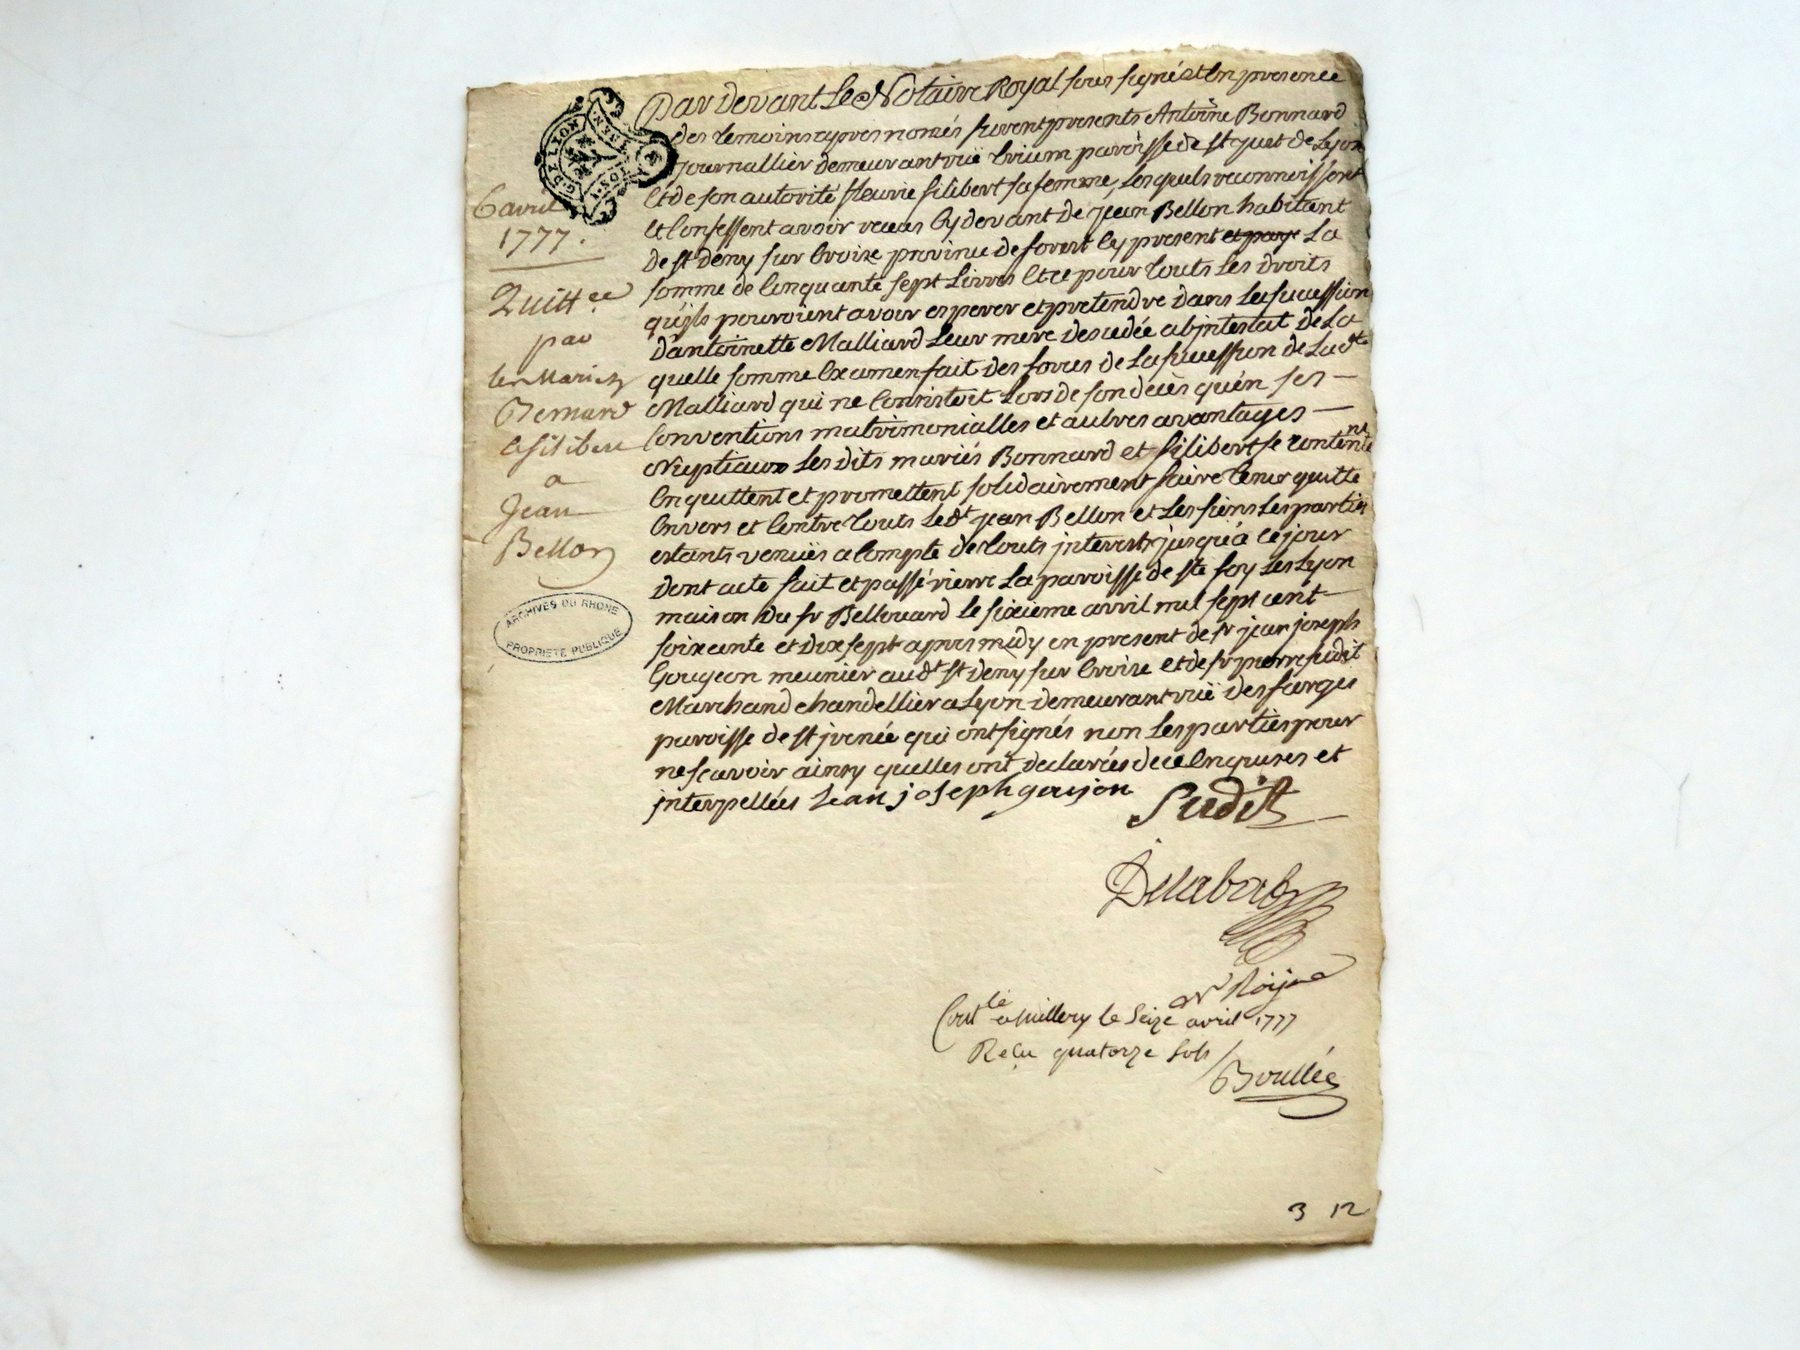 Par Devant Le Notaire Royal sous signé et En presence
des temoins cy pres només furent presents Antoine Bonnard
journallier demeurant ruë trium paroisse de st just de Lyon
Et de son autorité fleurie filibert sa femme, Lesquels reconnoissent
et Confessent avoir receus Cy devant de jean Bellon habitant
de st deny sur Croise province de forest Cy present et paye La
somme de Cinquante sept Livres Et ce pour touts Les droits
quijls pourroient avoir esperer et pretendre dans La succession
dantoinette Malliard Leur mere decedée abjntestat de La
quelle somme Examen fait des forces de La succession de Ladte
Malliard qui ne Consistoit Lors de son décès quén ses —
Conventions matrimonialles et autres avantages —
Nuptiaux Les dits mariés Bonnard et filibert se contentent
En quittent et promettent solidairement faire tenir quitte
Envers et Contre touts Ledt jean Bellon et Les siens Les parties
estants venuës a Compte de touts jnterests jusquá ce jour
dont acte fait et passé rierre La paroisse de ste foy Les Lyon
maison du sr Bellouard le sixieme avril mil sept cent —
soixante et dix sept apres midy en present de sr jean joseph
Gougeon meunier audt st deny sur Croise et de sr pierre sudit
Marchand chandellier a Lyon demeurant ruë des farges
paroisse de st jrenée qui ont signés non Les parties pour
ne scavoir ainsy quelles ont declarées de ce Enquises et
jnterpellées Lean joseph goujon Sudit
Delabal
Nre Roijal
Contlé a Millery le Seize avril 1777
Reçu quatorze sols
Boullée
3 12
GEN. DE LYON
6 avril
1777.
Quittce
par
les Mariez
Bernard
& filibert
a
Jean
Bellon
ARCHIVES DU RHONE
PROPRIETE PUBLIQUE